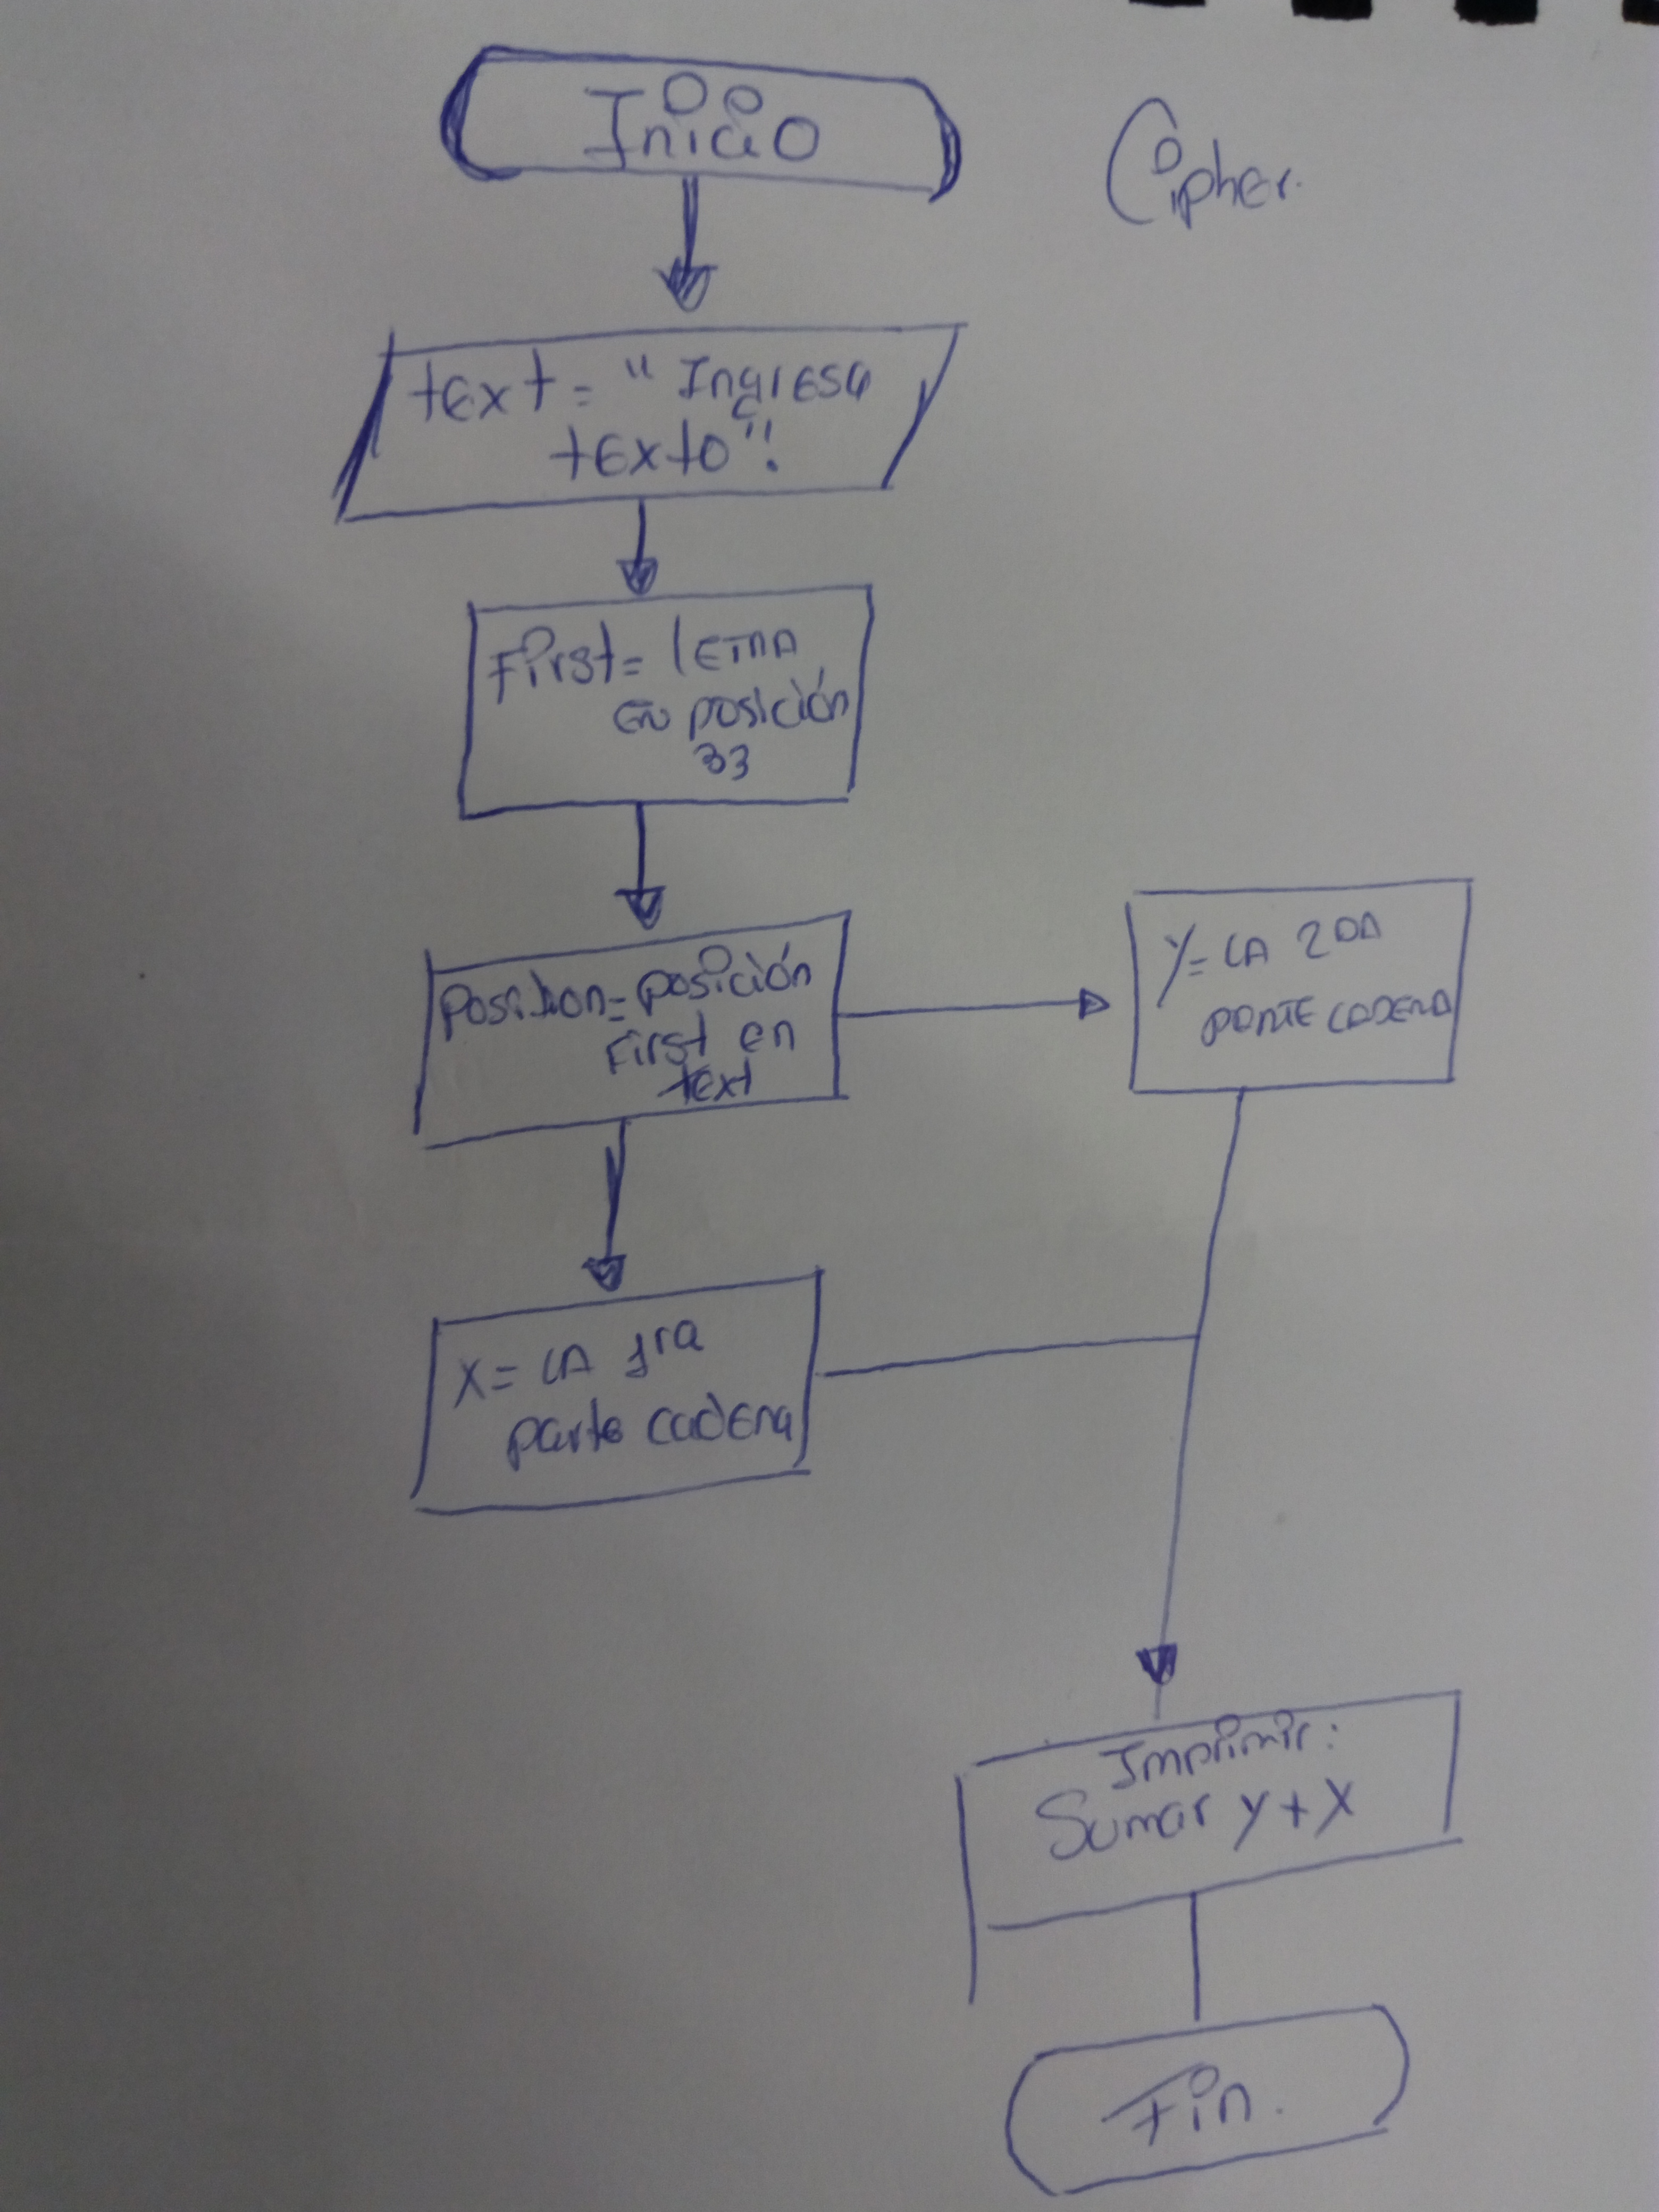 Inicio
Cipher.
text = "Ingresa
texto".
First = letra
en posición
33
Position = posición
First en
text
Y = LA 2DA
PARTE CADENA
X = LA 1ra
parte cadena
Imprimir:
Sumar y + x
Fin.